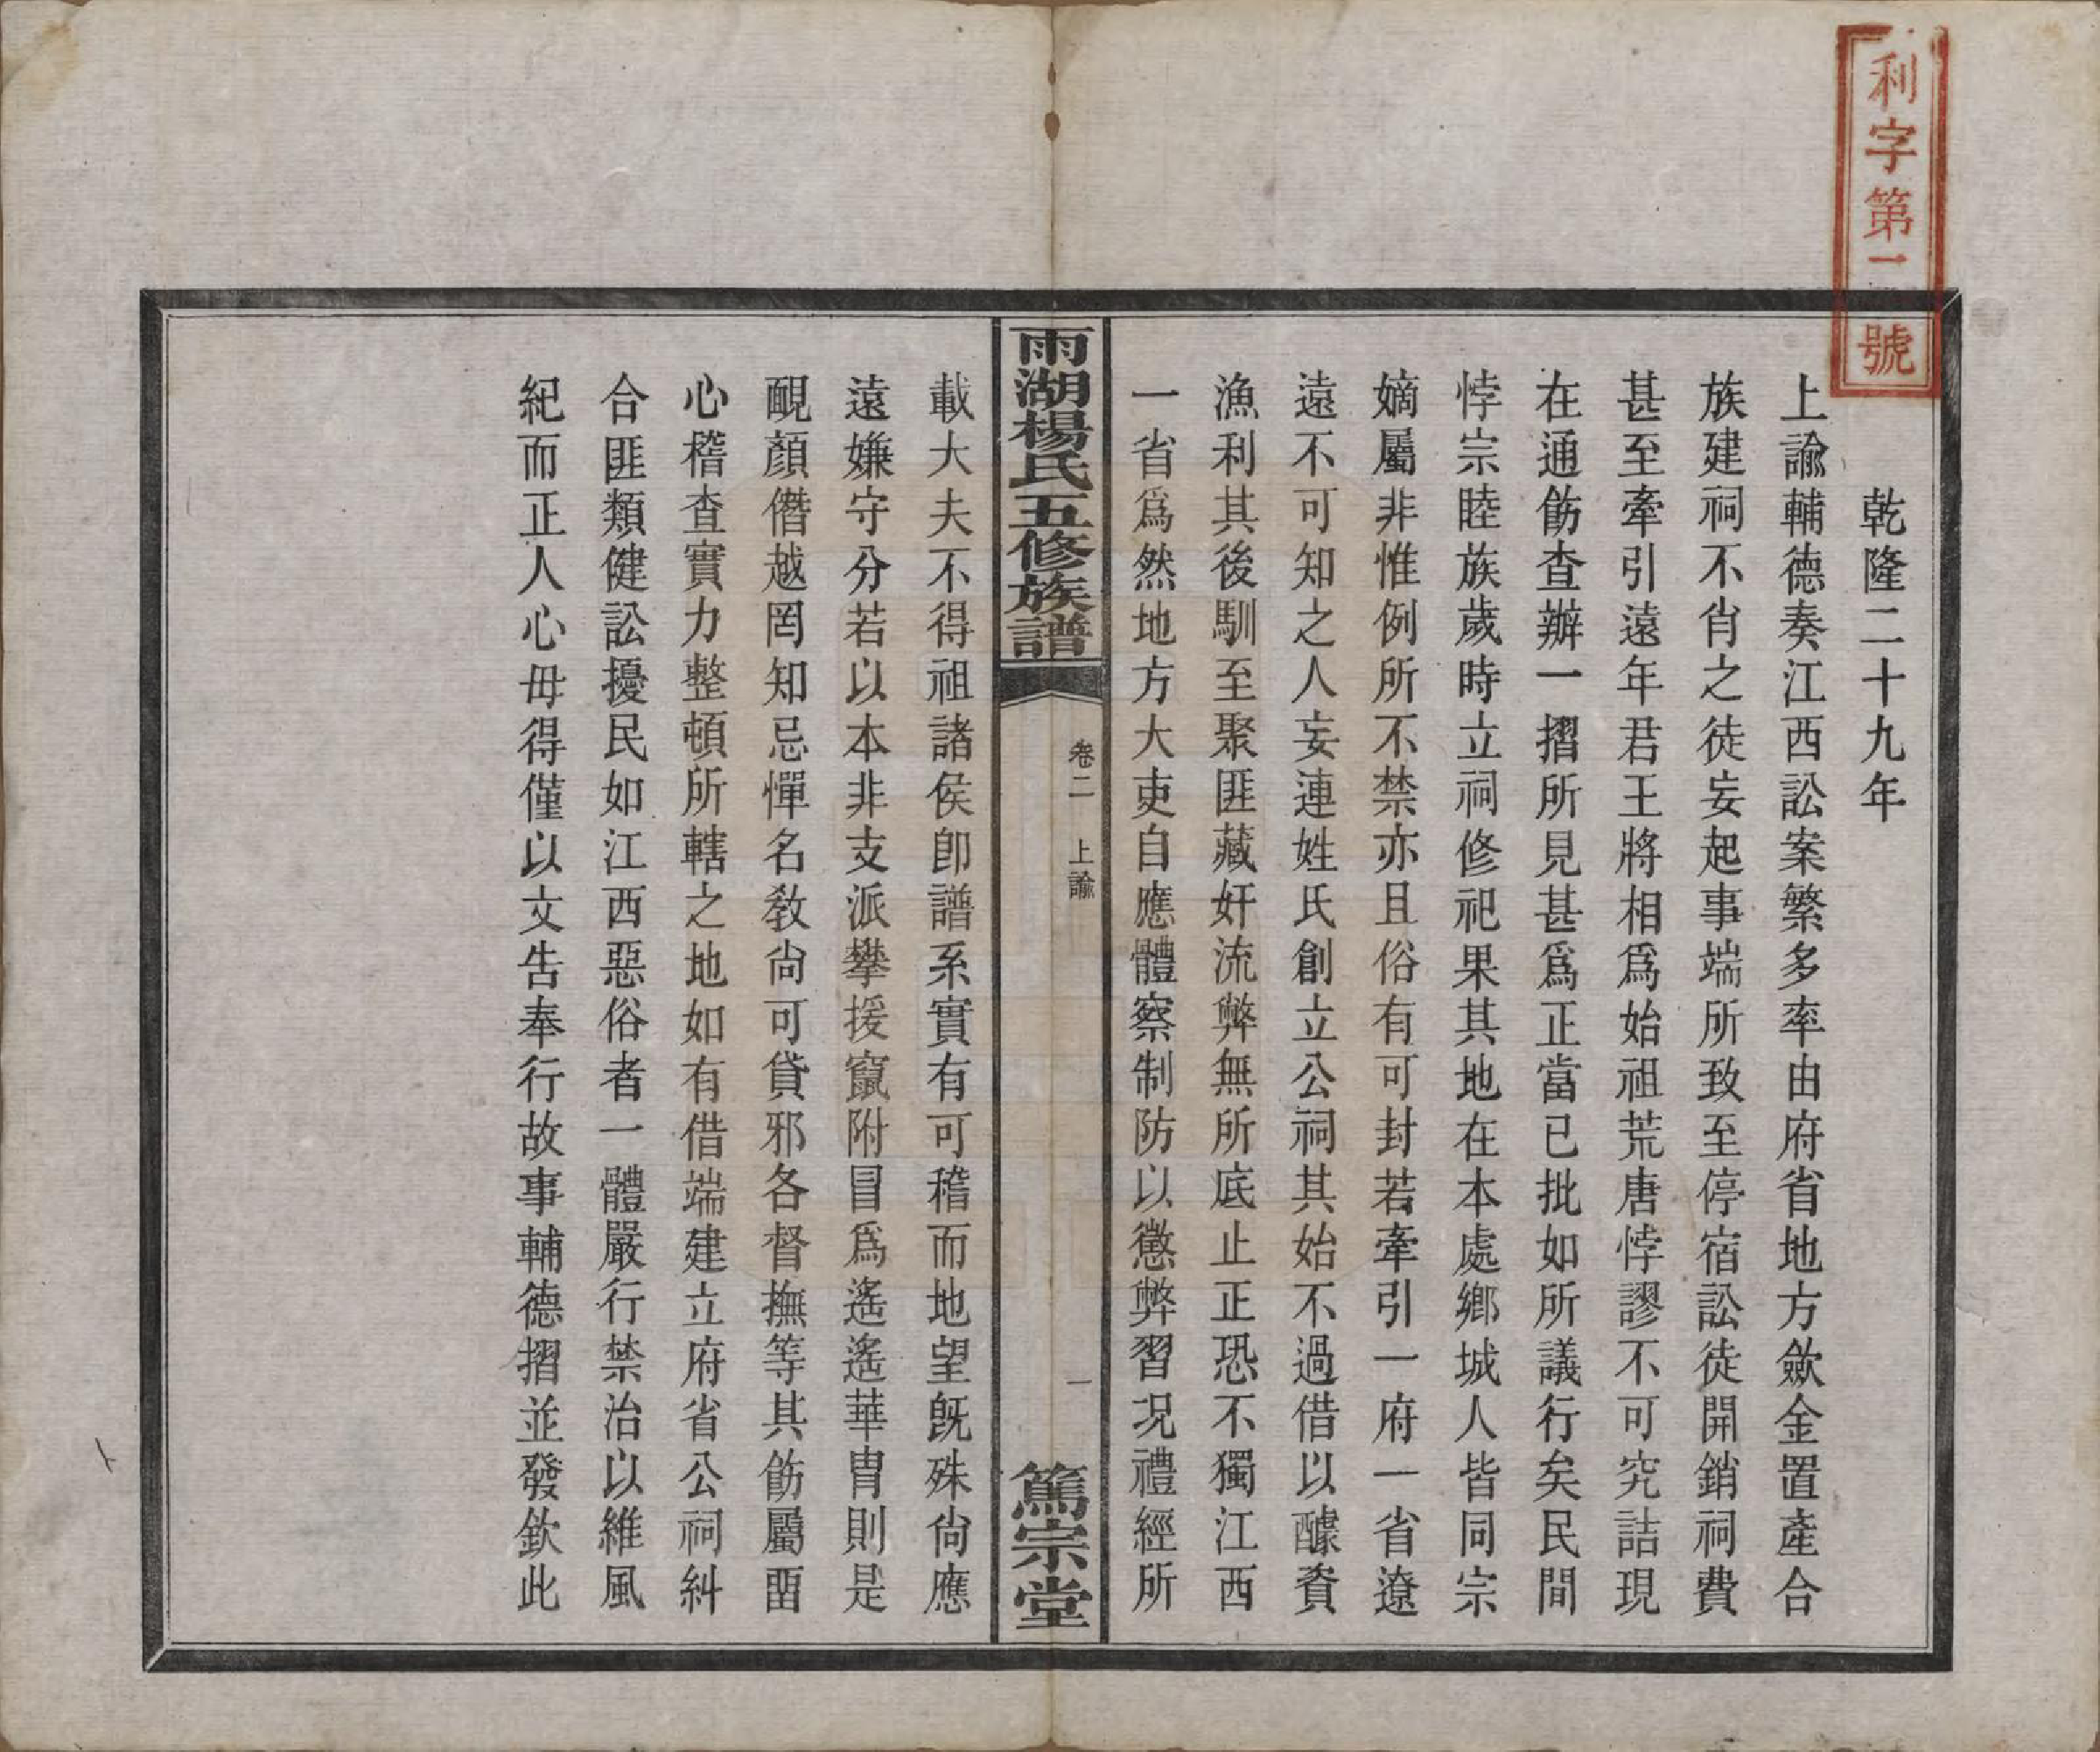 利字第一號
乾隆二十九年
上諭輔德奏江西訟案繁多率由府省地方斂金置產合
族建祠不肖之徒妄起事端所致至停宿訟徒開銷祠費
甚至牽引遠年君王將相爲始祖荒唐悖謬不可究詰現
在通飭查辦一摺所見甚爲正當已批如所議行矣民間
惇宗睦族歲時立祠修祀果其地在本處鄉城人皆同宗
嫡屬非惟例所不禁亦且俗有可封若牽引一府一省遼
遠不可知之人妄連姓氏創立公祠其始不過借以醵資
漁利其後馴至聚匪藏奸流弊無所底止正恐不獨江西
一省爲然地方大吏自應體察制防以懲弊習况禮經所
雨湖楊氏五修族譜
卷二 上諭
一
篤宗堂
載大夫不得祖諸侯卽譜系實有可稽而地望旣殊尙應
遠嫌守分若以本非支派攀援竄附冒爲遙遙華胄則是
靦顏僭越罔知忌憚名敎尙可貸邪各督撫等其飭屬畱
心稽查實力整頓所轄之地如有借端建立府省公祠糾
合匪類健訟擾民如江西惡俗者一體嚴行禁治以維風
紀而正人心毋得僅以文告奉行故事輔德摺並發欽此